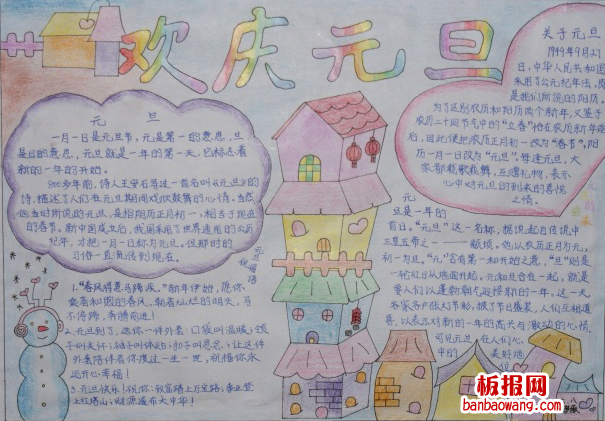 欢庆元旦
元 旦
一月一日是元旦节,元是第一的意思,旦
是日的意思,元旦就是一年的第一天,它标志着
新的一年的开始。
800多年前,诗人王安石写过一首名叫《元旦》的
诗,描述了人们在元旦期间欢欣鼓舞的心情。当然
他当时所说的元旦,是指阴历正月初一,相当于现在
的春节。新中国成立后,我国采用了世界通用的公历
纪年,才把一月一日称为元旦。但那时的
习俗一直流传到现在。
元旦祝福语
1.“春风得意马蹄疾。”新年伊始,愿你
乘着和煦的春风,朝着灿烂的明天,马
不停蹄,奔腾前进!
2.元旦到了,送你一件外套:口袋叫温暖;领
子叫关怀;袖子叫体贴;扣子叫思念;让这件
外套陪伴着你度过一生一世,祝福你永
远开心幸福!
3.元旦快乐!祝你:致富踏上万宝路;事业登
上红塔山;财源遍布大中华!
关于元旦
1949年9月27
日,中华人民共和国
采用了公元纪年法,
是我们所说的阳历,
为了区别农历和阳历两个新年,又鉴于
农历二十四节气中的“立春”恰在农历新年前
后,因此便把农历正月初一改为“春节”,阳
历一月一日改为“元旦”。每逢元旦,大
家都载歌载舞,互赠礼物,表示
心中对元旦的到来的喜悦
之情。
元
旦是一年的
首日。“元旦”这一名称,据说起自传说中
三皇五帝之一——颛顼。他以农历正月为元,
初一为旦。“元”含有第一和开始之意,“旦”则是
一轮红日从地面升起。元和旦合在一起,就是
要人们以蓬勃朝气迎接新的一年,这一天
客家各户张灯节彩,披节日盛装,人们互相道
喜,以表示对新的一年的高兴与激动的心情。
可见元旦 在人们心
中的 美好地
板报网
banbaowang.com